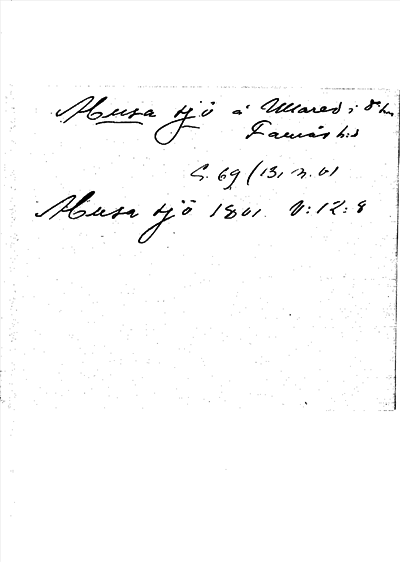 Musa sjö å Ullared i
Fauråshd
S. 69 (13, n. 01
Musa sjö 1801. V: 12: 8